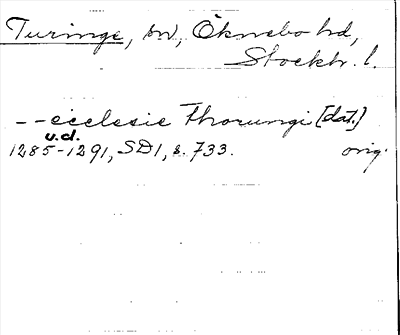 Turinge, sn, Öknebo hd,
Stockh. l.
-- ecclesie Thorungi [dat.]
u.d.
1285-1291, SD1, s. 733. orig.